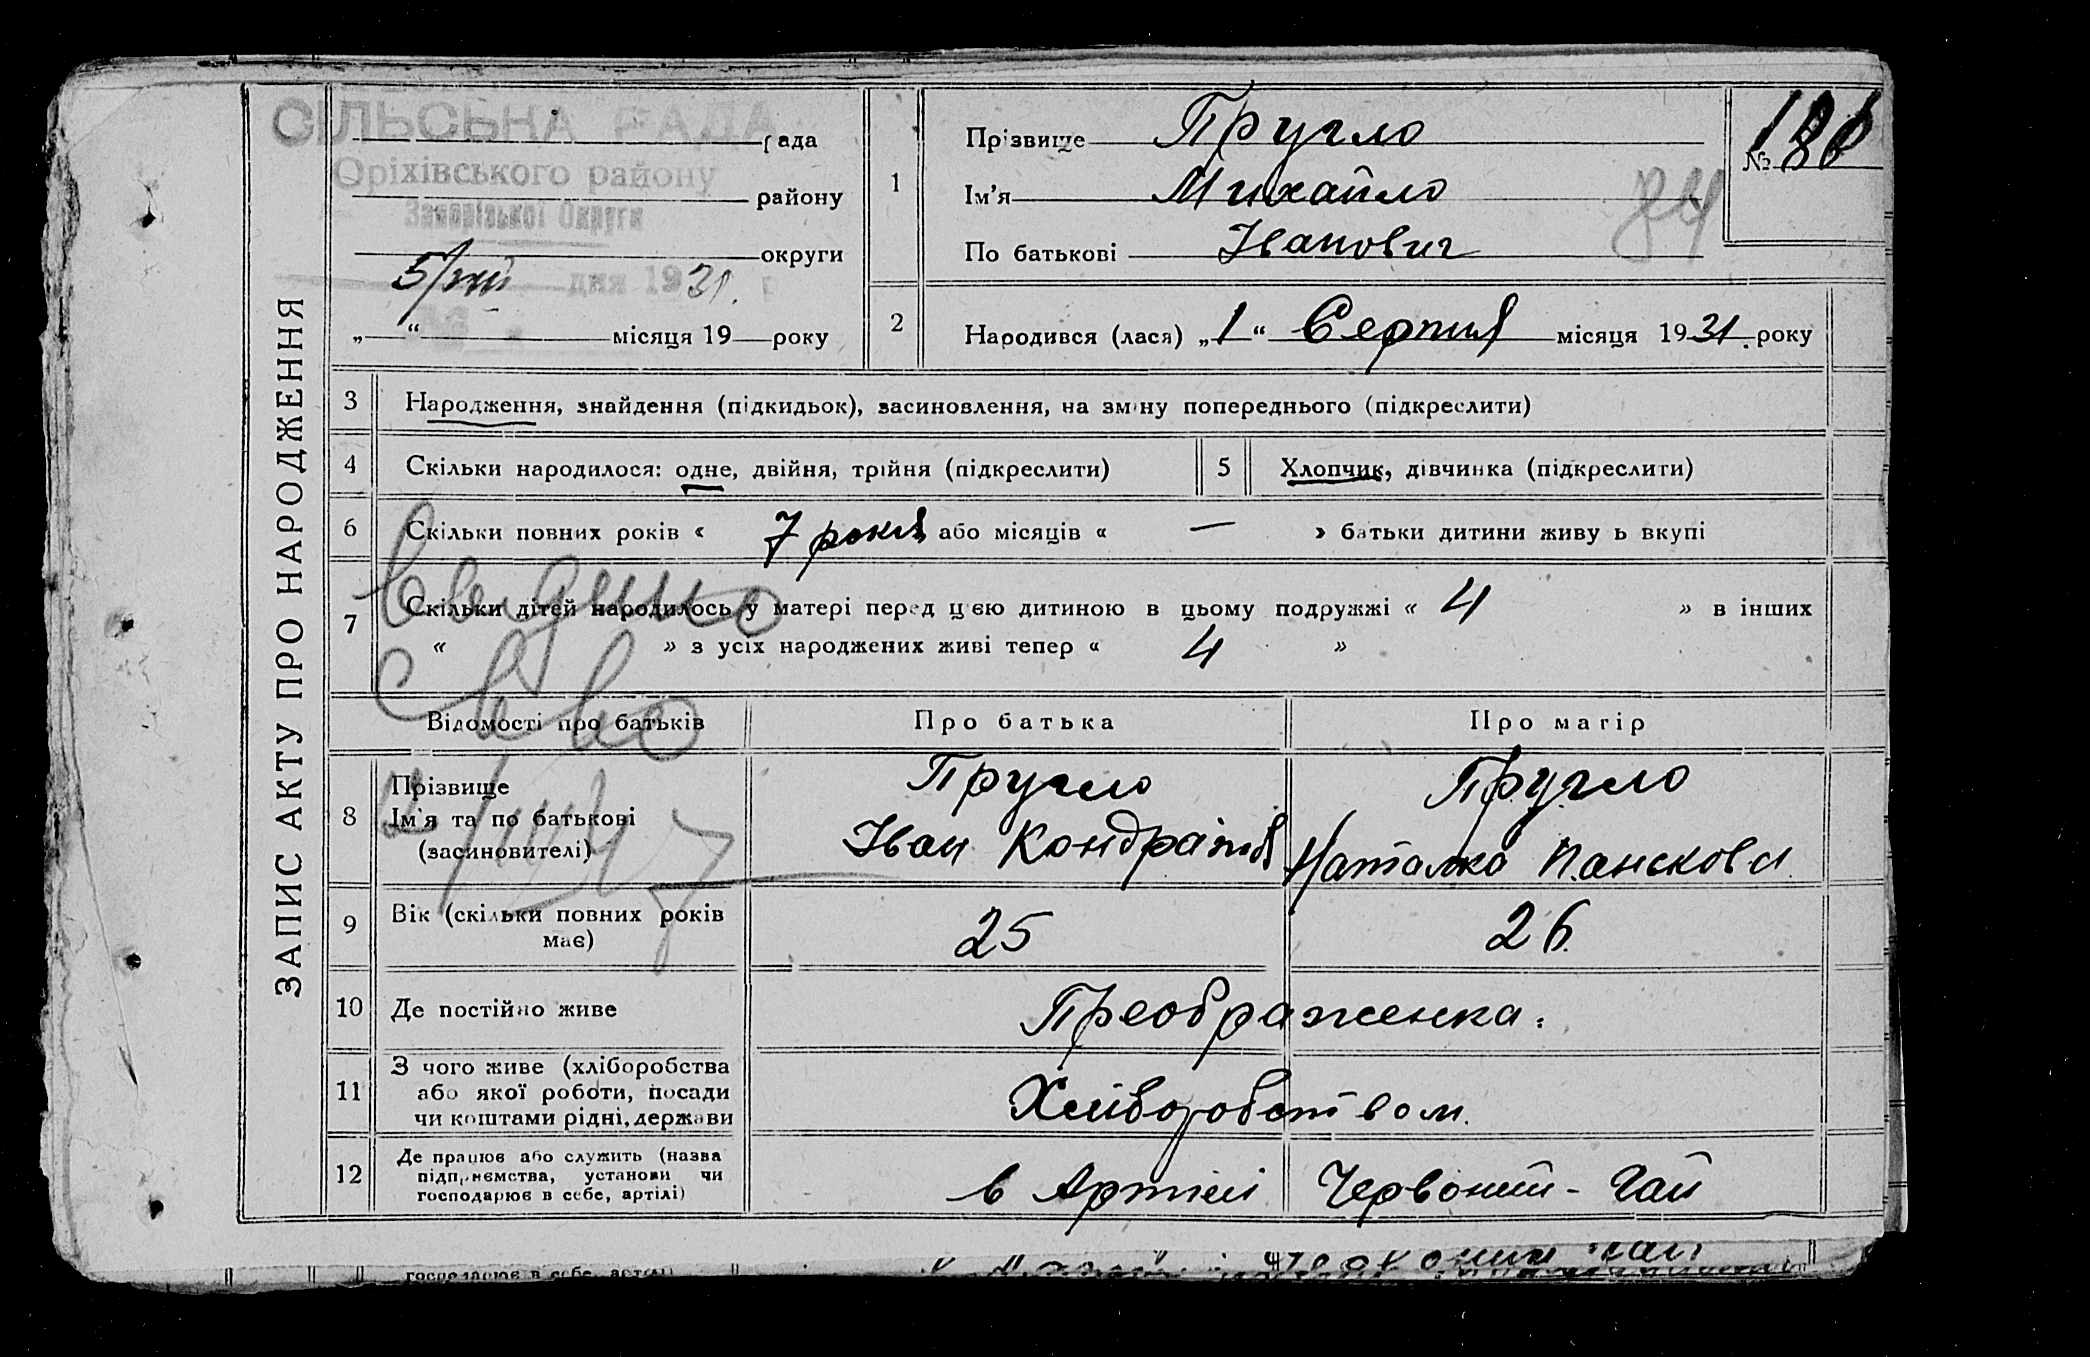 ЗАПИС АКТУ ПРО НАРОДЖЕННЯ
СІЛЬСЬКА РАДА
рада
Оріхівського району
району
Запорізької Округи
округи
5/VIII дня 1931.
„ “ місяця 19 року
1
Прізвище Пругло
Ім'я Михайло
По батькові Іванович
№ 186
84
2
Народився (лася) „1“ Серпня місяця 1931. року
3 Народження, знайдення (підкидьок), засиновлення, на зміну попереднього (підкреслити)
4 Скільки народилося: одне, двійня, трійня (підкреслити)
5 Хлопчик, дівчинка (підкреслити)
6 Скільки повних років « 7 років або місяців « — » батьки дитини живуть вкупі
7 Скільки дітей народилось у матері перед цією дитиною в цьому подружжі « 4 » в інших
« » з усіх народжених живі тепер « 4 »
Видано
св во
Відомості про батьків Про батька Про матір
8 Прізвище
Ім'я та по батькові
(засиновителі)
Пругло
Іван Кондратів
Пругло
Наталка Панскова
9 Вік (скільки повних років має) 25 26.
10 Де постійно живе Преображенка.
11 З чого живе (хліборобства
або якої роботи, посади
чи коштами рідні, держави
Хліборобством.
12 Де працює або служить (назва
підприємства, установи чи
господарює в себе, артілі)
в Артілі Червоний-Гай
господарює в себе, артілі)